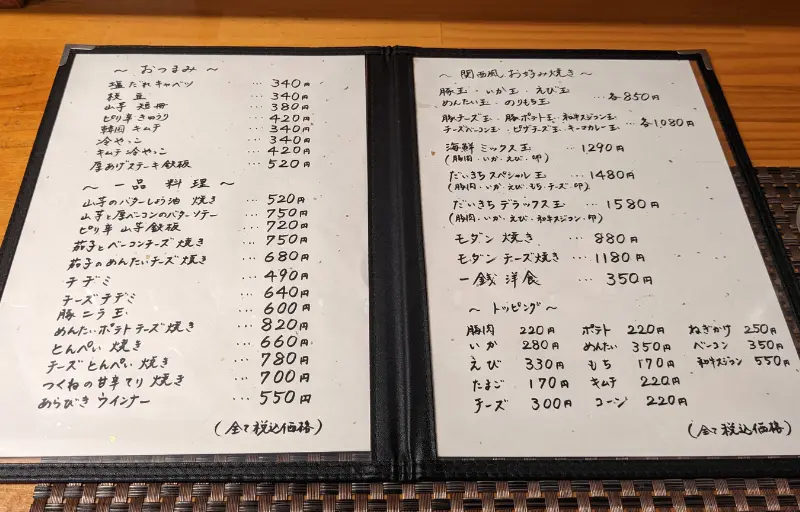 ～ おつまみ ～
塩だれキャベツ … 340円
枝豆 … 340円
山芋 短冊 … 380円
ピリ辛きゅうり … 420円
韓国 キムチ … 340円
冷やっこ … 340円
キムチ冷やっこ … 420円
厚あげステーキ鉄板 … 520円
～ 一品 料理 ～
山芋のバターしょう油 焼き … 520円
山芋と厚ベーコンのバターソテー … 750円
ピリ辛 山芋鉄板 … 720円
茄子とベーコンチーズ焼き … 750円
茄子のめんたいチーズ焼き … 680円
チヂミ … 490円
チーズチヂミ … 640円
豚ニラ玉 … 600円
めんたいポテトチーズ焼き … 820円
とんぺい 焼き … 660円
チーズとんぺい 焼き … 780円
つくねの甘辛てり 焼き … 700円
あらびきウインナー … 550円
(全て税込価格)
～ 関西風 お好み焼き ～
豚玉・いか玉・えび玉
めんたい玉・のりもち玉 … 各850円
豚チーズ玉・豚ポテト玉・和牛スジコン玉
チーズベーコン玉・ピザチーズ玉・キーマカレー玉 … 各1080円
海鮮ミックス玉 … 1290円
(豚肉・いか・えび・卵)
だいきちスペシャル玉 … 1480円
(豚肉・いか・えび・もち・チーズ・卵)
だいきちデラックス玉 … 1580円
(豚肉・いか・えび・和牛スジコン・卵)
モダン 焼き … 880円
モダン チーズ焼き … 1180円
一銭 洋食 … 350円
～ トッピング ～
豚肉 220円 ポテト 220円 ねぎかけ 250円
いか 280円 めんたい 350円 ベーコン 350円
えび 330円 もち 170円 和牛スジコン 550円
たまご 170円 キムチ 220円
チーズ 300円 コーン 220円
(全て税込価格)